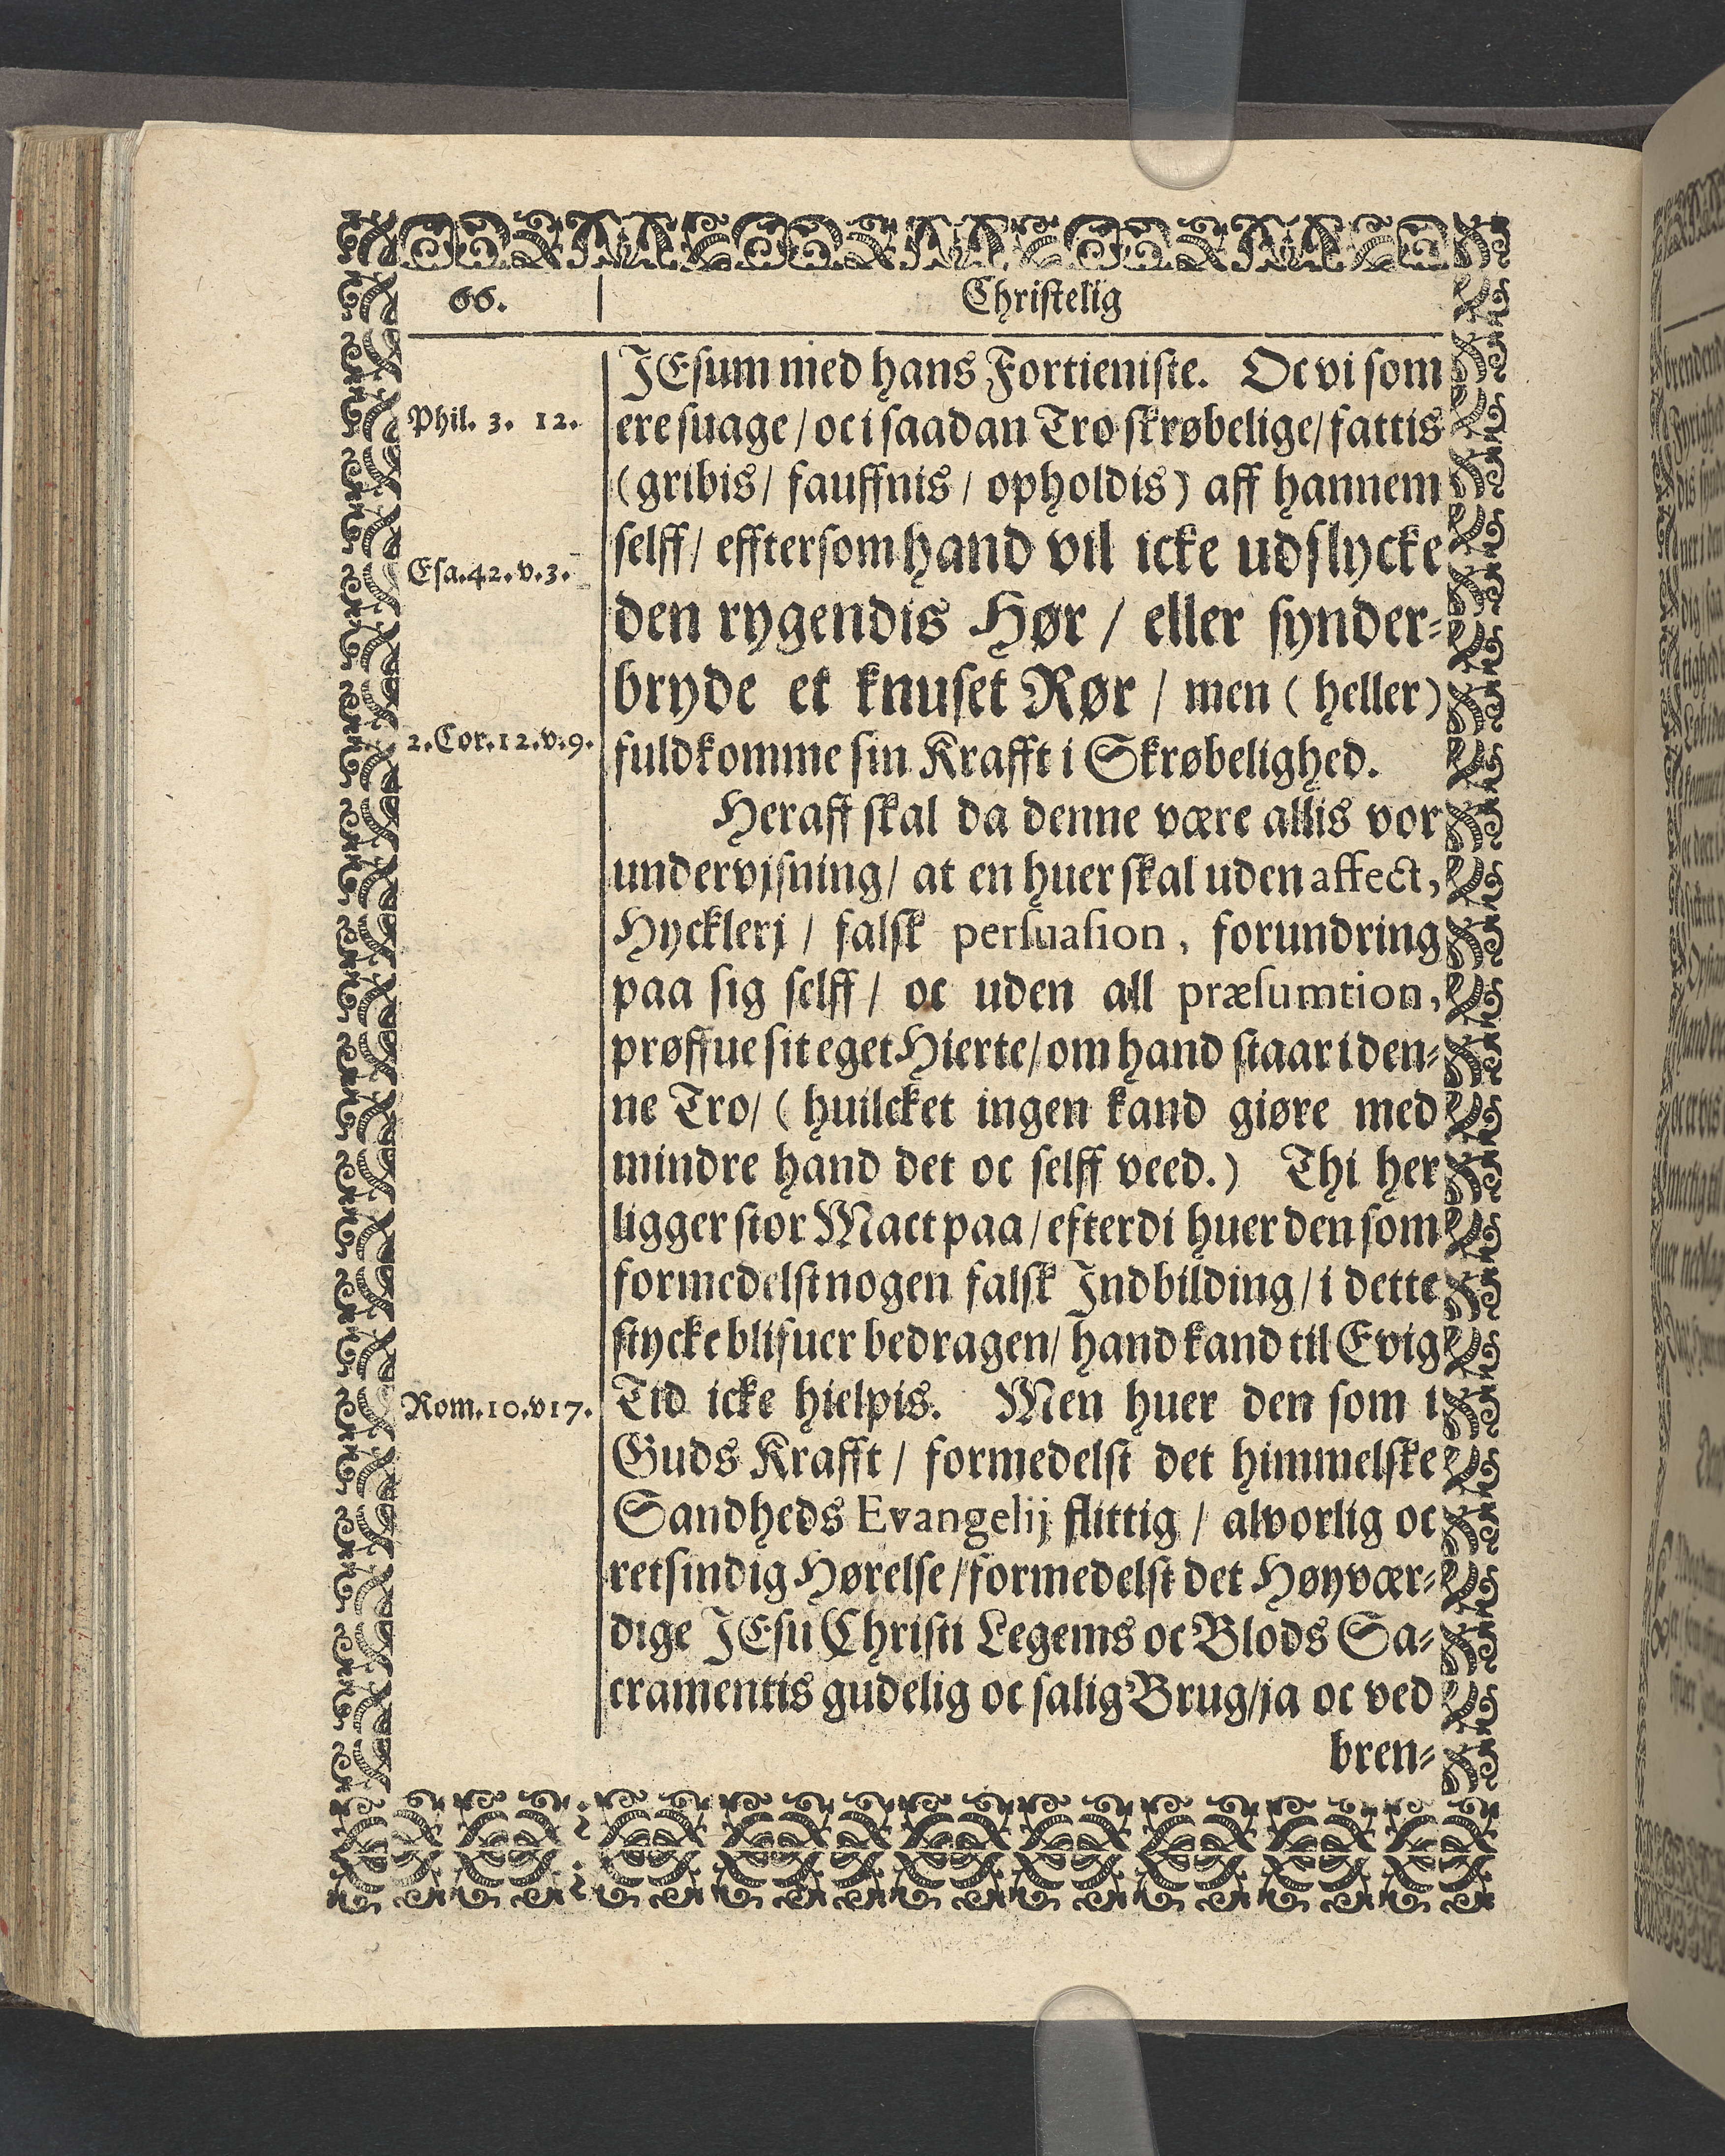 66.
Christelig
JEsum med hans Fortieniste. Oc vi som
Phil. 3. 12.
ere suage / oc i saadan Tro skrøbelige / fattis
(gribis / fauffnis / opholdis) aff hannem
selff / efftersom hand vil icke udslycke
Esa.42.v.3.
den rygendis Hør / eller synder⸗
bryde et knuset Rør / men (heller)
2.Cor.12.v.9.
fuldkomme sin Krafft i Skrøbelighed.
Heraff skal da denne være allis vor
undervjsning / at en huer skal uden affect,
Hycklerj / falsk persuasion, forundring
paa sig selff / oc uden all præsumtion,
prøffue sit eget Hierte / om hand staar i den⸗
ne Tro / (huilcket ingen kand giøre med
mindre hand det oc selff veed.) Thi her
ligger stor Mact paa / efterdi huer den som
formedelst nogen falsk Indbilding / i dette
stycke blifuer bedragen / hand kand til Evig
Tid icke hielpis. Men huer den som i
Rom.10.v17.
Guds Krafft / formedelst det himmelske
Sandheds Evangelij flittig / alvorlig oc
retsindig Hørelse / formedelst det Høyvær⸗
dige JEsu Christi Legems oc Blods Sa⸗
cramentis gudelig oc salig Brug / ja oc ved
bren⸗